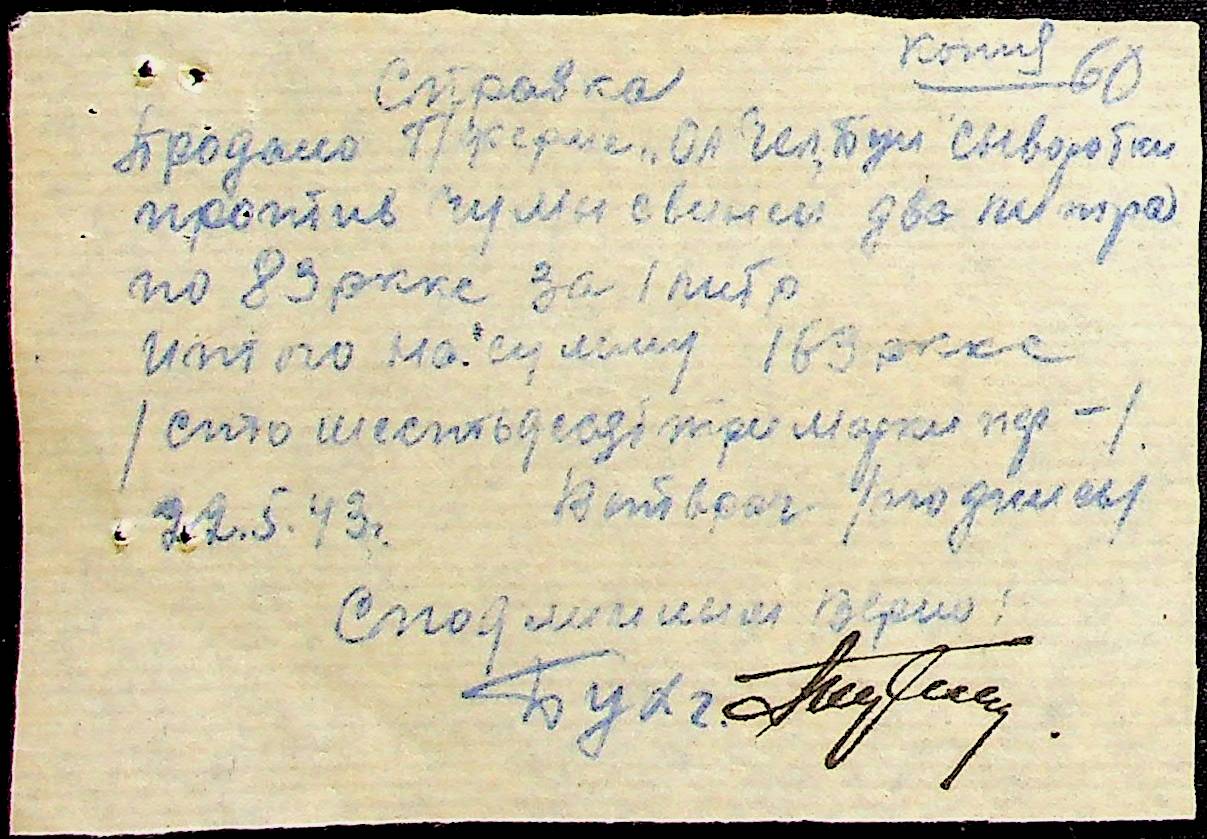 Копия 60
Справка
Продано Г/ферме „Ол Чел, Буи" сыворотки
против чумы свиней два литра
по 83 ркке за 1 литр
итого на сумму 163 ркке
/сто шестьдесят три марки
22.5.43г. Ветврач /подпись/
С подлинным верно:
Бухг.